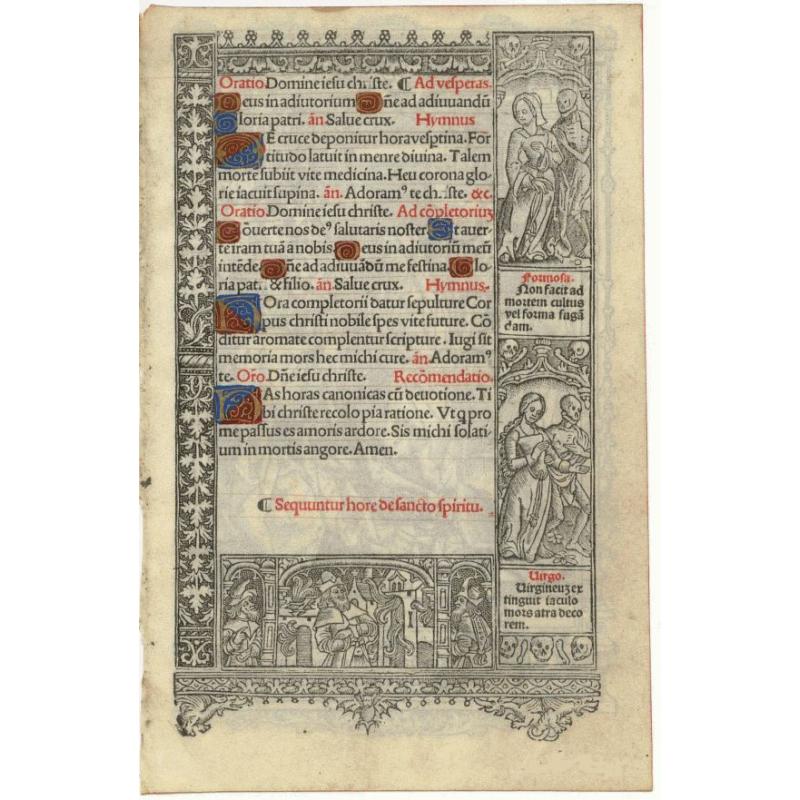 Oratio. Domine iesu ch. ste. ¶ Ad vesperas.
Deus in adiutorium Dn̄e ad adiuuandū
Gloria patri. ān. Salue crux. Hymnus
DE cruce deponitur hora vesptina. For
titudo latuit in menre diuina. Talem
morte subiit vite medicina. Heu corona glo
rie iacuit supina. ān. Adoramꝰ te ch. ste. ⁊c.
Oratio. Domine iesu christe. Ad cōpletoriuȝ
Cōuerte nos deꝰ salutaris noster Et auer
te iram tuā a nobis. Deus in adiutoriū meū
intēde. Dn̄e ad adiuuādū me festina. Glo
ria pat. . & filio. ān. Salue crux. Hymnus.
HOra completorii datur sepulture Cor
pus christi nobile spes vite future. Cō
ditur aromate complentur scripture. Iugi sit
memoria mors hec michi cure. ān. Adoramꝰ
te. Oro. Dn̄e iesu christe. Recōmendatio.
HAs horas canonicas cū deuotione. Ti
bi christe recolo pia ratione. Vtq pro
me passus es amoris ardore. Sis michi solati
um in mortis angore. Amen.
¶ Sequuntur hore de sancto spiritu.
Formosa.
Non facit ad
mortem cultus
vel forma fugā
dam.
Uirgo.
Uirgineuȝ ex
tinguit iaculo
mors atra deco
rem.